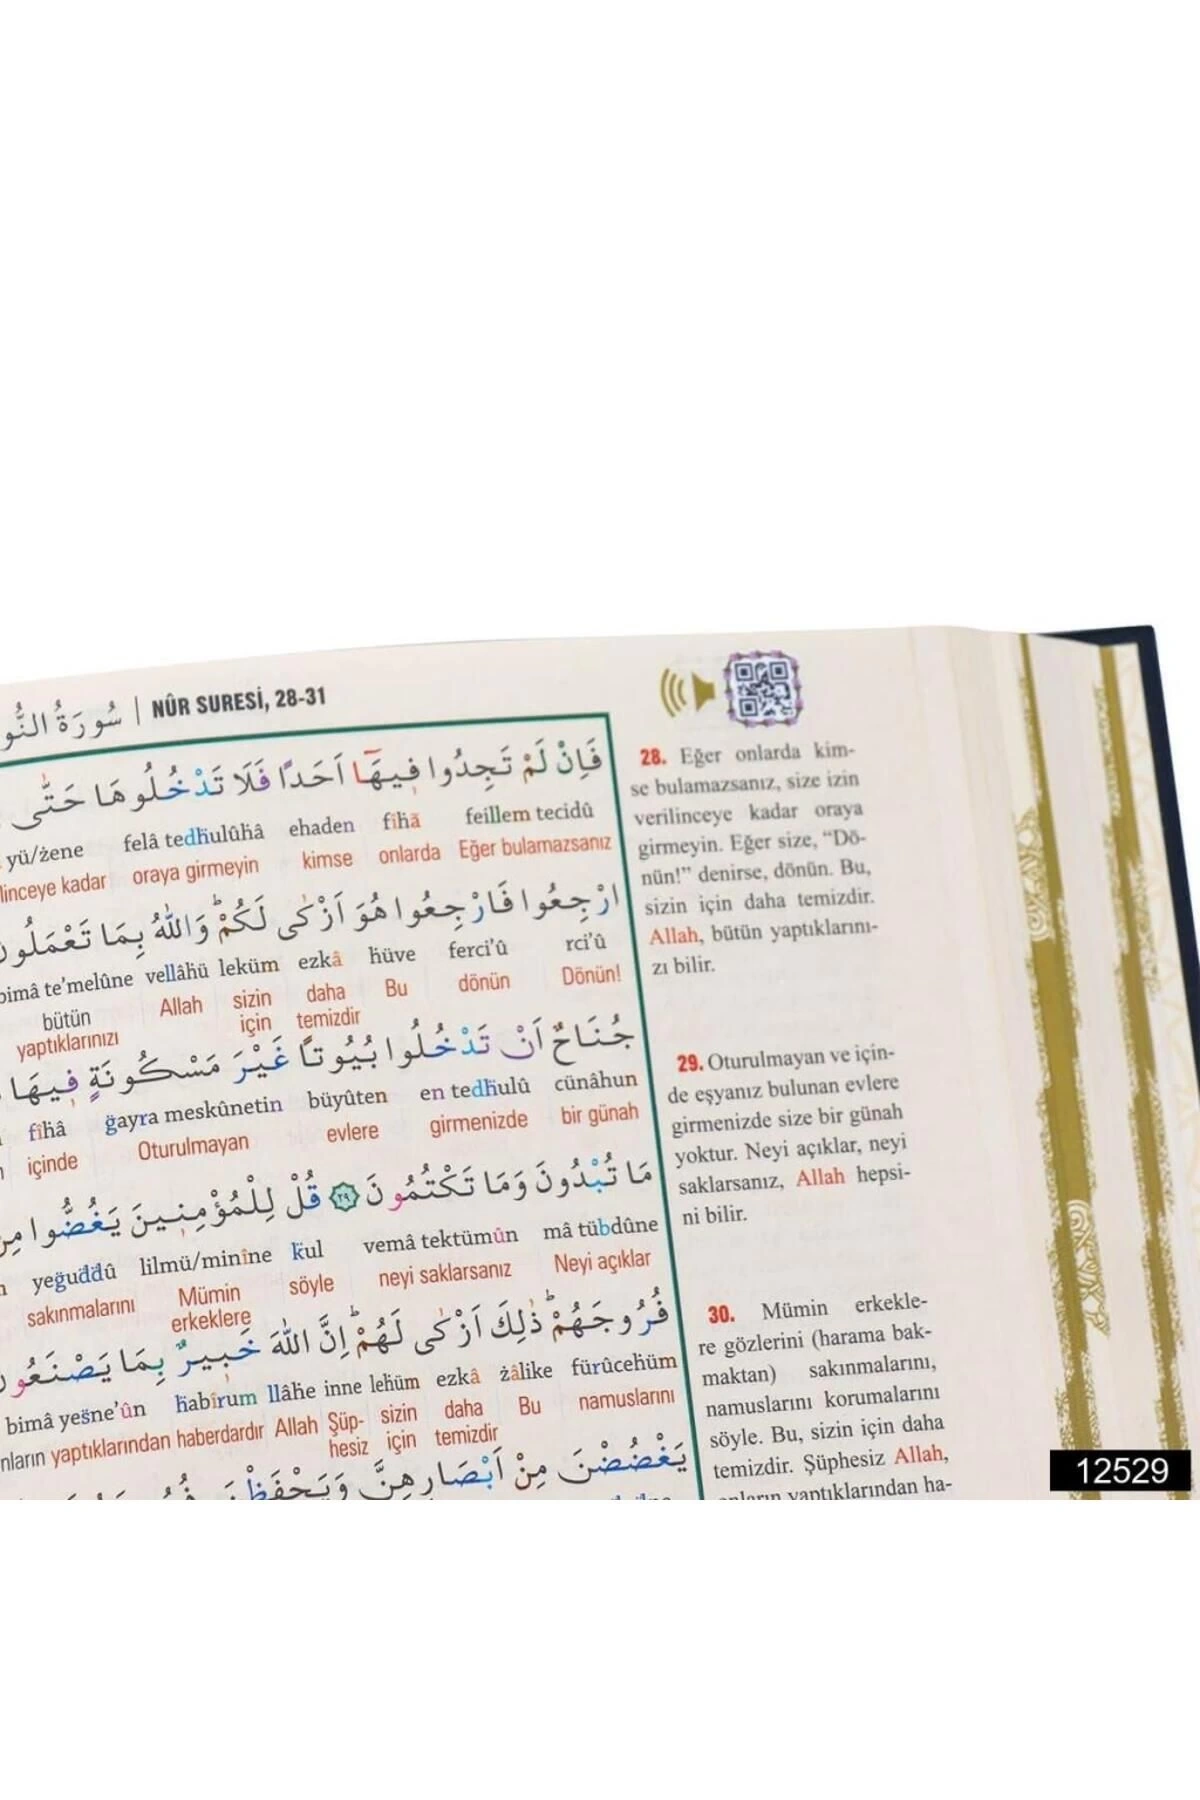 سُورَةُ النُّو | NÛR SURESİ, 28-31
فَاِنْ لَمْ تَجِدُوا فٖيهَٓا اَحَدًا فَلَا تَدْخُلُوهَا حَتّٰى
yü/żene felâ tedḣulûhâ ehaden fîhâ feillem tecidû
linceye kadar oraya girmeyin kimse onlarda Eğer bulamazsanız
ارْجِعُوا فَارْجِعُوا هُوَ اَزْكٰى لَكُمْؕ وَاللّٰهُ بِمَا تَعْمَلُونَ
bimâ te'melûne vellâhü leküm ezkâ hüve ferci'û rci'û
bütün Allah sizin daha Bu dönün Dönün!
yaptıklarınızı için temizdir
جُنَاحٌ اَنْ تَدْخُلُوا بُيُوتًا غَيْرَ مَسْكُونَةٍ فٖيهَا
fîhâ ğayra meskûnetin büyûten en tedḣulû cünâhun
içinde Oturulmayan evlere girmenizde bir günah
مَا تُبْدُونَ وَمَا تَكْتُمُونَ ﴿٢٩﴾ قُلْ لِلْمُؤْمِنٖينَ يَغُضُّوا مِنْ
yeğuddû lilmü/minîne kul vemâ tektümûn mâ tübdûne
sakınmalarını Mümin söyle neyi saklarsanız Neyi açıklar
erkeklere
فُرُوجَهُمْؕ ذٰلِكَ اَزْكٰى لَهُمْؕ اِنَّ اللّٰهَ خَبٖيرٌ بِمَا يَصْنَعُونَ
bimâ yesne'ûn ḣabîrum llâhe inne lehüm ezkâ żâlike fürûcehüm
nların yaptıklarından haberdardır Allah Şüp- sizin daha Bu namuslarını
hesiz için temizdir
يَغْضُضْنَ مِنْ اَبْصَارِهِنَّ وَيَحْفَظْنَ
28. Eğer onlarda kim-
se bulamazsanız, size izin
verilinceye kadar oraya
girmeyin. Eğer size, “Dö-
nün!” denirse, dönün. Bu,
sizin için daha temizdir.
Allah, bütün yaptıklarını-
zı bilir.
29. Oturulmayan ve için-
de eşyanız bulunan evlere
girmenizde size bir günah
yoktur. Neyi açıklar, neyi
saklarsanız, Allah hepsi-
ni bilir.
30. Mümin erkekle-
re gözlerini (harama bak-
maktan) sakınmalarını,
namuslarını korumalarını
söyle. Bu, sizin için daha
temizdir. Şüphesiz Allah,
onların yaptıklarından ha-
12529